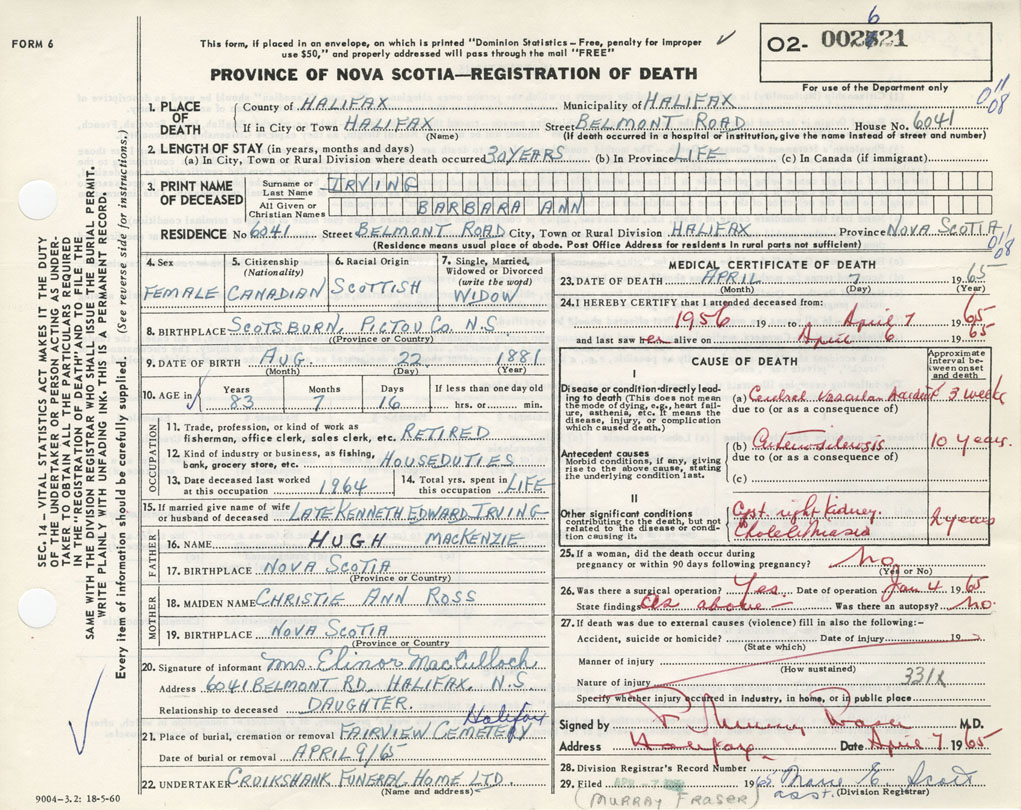 FORM 6
This form, if placed in an envelope, on which is printed "Dominion Statistics – Free, penalty for improper
use $50," and properly addressed will pass through the mail "FREE"
PROVINCE OF NOVA SCOTIA—REGISTRATION OF DEATH
O2-
For use of the Department only
011
08
1. PLACE OF DEATH
County of HALIFAX Municipality of HALIFAX
If in City or Town HALIFAX Street BELMONT ROAD House No. 6041
(Name) (If death occurred in a hospital or institution, give the name instead of street and number)
2. LENGTH OF STAY (in years, months and days)
(a) In City, Town or Rural Division where death occurred 30 YEARS (b) In Province LIFE (c) In Canada (if immigrant)
3. PRINT NAME OF DECEASED
Surname or Last Name IRVING
All Given or Christian Names BARBARA ANN
RESIDENCE No 6041 Street BELMONT ROAD City, Town or Rural Division HALIFAX Province NOVA SCOTIA
(Residence means usual place of abode. Post Office Address for residents in rural parts not sufficient)
011
08
4. Sex FEMALE
5. Citizenship (Nationality) CANADIAN
6. Racial Origin SCOTTISH
7. Single, Married, Widowed or Divorced (write the word) WIDOW
8. BIRTHPLACE SCOTSBURN, PICTOU CO. N.S
(Province or Country)
9. DATE OF BIRTH AUG. 22 1881
(Month) (Day) (Year)
10. AGE in Years 83 Months 7 Days 16 If less than one day old hrs. or min.
OCCUPATION
11. Trade, profession, or kind of work as
fisherman, office clerk, sales clerk, etc. RETIRED
12. Kind of industry or business, as fishing,
bank, grocery store, etc. HOUSEDUTIES
13. Date deceased last worked at this occupation 1964
14. Total yrs. spent in this occupation LIFE
15. If married give name of wife
or husband of deceased LATE KENNETH EDWARD IRVING
FATHER
16. NAME HUGH MACKENZIE
17. BIRTHPLACE NOVA SCOTIA
(Province or Country)
MOTHER
18. MAIDEN NAME CHRISTIE ANN ROSS
19. BIRTHPLACE NOVA SCOTIA
(Province or Country
20. Signature of informant Mrs. Elinor MacCulloch
Address 6041 BELMONT RD. HALIFAX, N.S.
Relationship to deceased DAUGHTER.
21. Place of burial, cremation or removal FAIRVIEW CEMETERY Halifax
Date of burial or removal APRIL 9/65
22. UNDERTAKER CRUIKSHANK FUNERAL HOME LTD.
(Name and address)
9004—3.2: 18-5-60
MEDICAL CERTIFICATE OF DEATH
23. DATE OF DEATH APRIL 7 1965
(Month) (Day) (Year)
24. I HEREBY CERTIFY that I attended deceased from:
1956 19 to April 7 1965
and last saw her alive on April 6 1965
CAUSE OF DEATH
Approximate interval between onset and death
I
Disease or condition directly leading
to death (This does not mean
the mode of dying, e.g., heart failure,
asthenia, etc. It means the
disease, injury, or complication
which caused death.)
(a) Cerebral Vascular Accident 3 weeks
due to (or as a consequence of)
Antecedent causes
Morbid conditions, if any, giving
rise to the above cause, stating
the underlying condition last.
(b) Arteriosclerosis 10 years.
due to (or as a consequence of)
(c)
II
Other significant conditions
contributing to the death, but not
related to the disease or condition
causing it.
Cyst right kidney.
Cholelithiasis
2 years
25. If a woman, did the death occur during
pregnancy or within 90 days following pregnancy? No
(Yes or No)
26. Was there a surgical operation? Yes. Date of operation Jan 4 1965
State findings as above — Was there an autopsy? No.
27. If death was due to external causes (violence) fill in also the following:-
Accident, suicide or homicide? Date of injury 19
(State which)
Manner of injury
(How sustained)
Nature of injury 331X
Specify whether injury occurred in industry, in home, or in public place
Signed by T. Murray Fraser M.D.
Address Halifax Date April 7 1965
28. Division Registrar's Record Number
29. Filed APR - 7 1965 Marie E. Scott
asst. (Division Registrar)
(MURRAY FRASER)
SEC. 14—VITAL STATISTICS ACT MAKES IT THE DUTY
OF THE UNDERTAKER OR PERSON ACTING AS UNDERTAKER
TO OBTAIN ALL THE PARTICULARS REQUIRED
IN THE "REGISTRATION OF DEATH" AND TO FILE THE
SAME WITH THE DIVISION REGISTRAR WHO SHALL ISSUE THE BURIAL PERMIT.
WRITE PLAINLY WITH UNFADING INK. THIS IS A PERMANENT RECORD.
Every item of information should be carefully supplied. (See reverse side for instructions.)